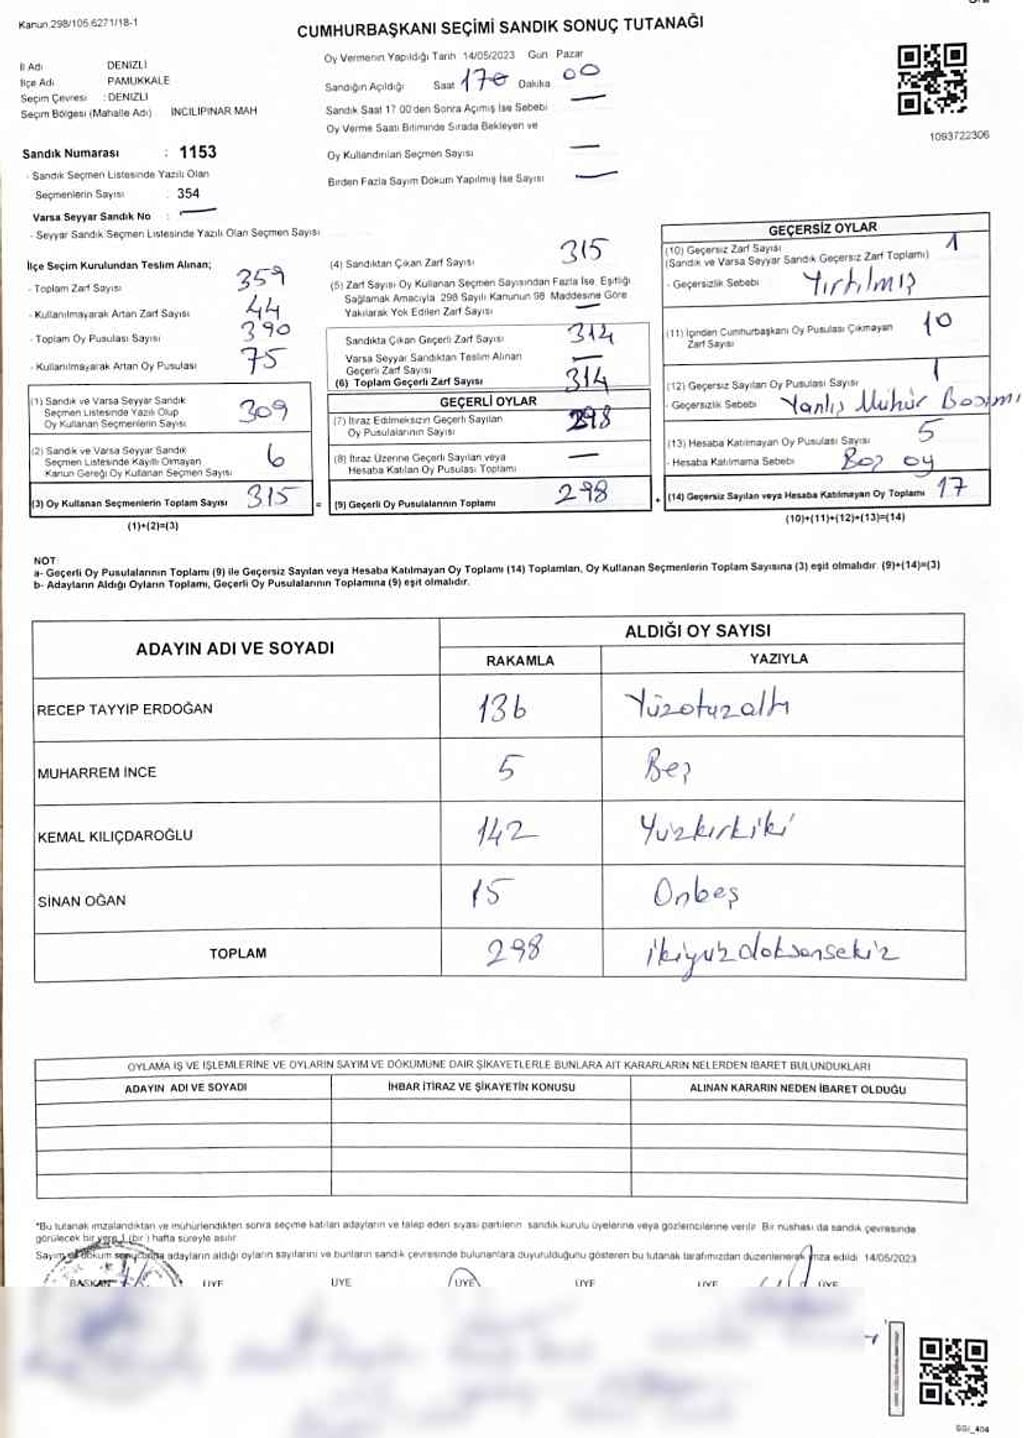 Kanun.298/105.6271/18-1
CUMHURBAŞKANI SEÇİMİ SANDIK SONUÇ TUTANAĞI
İl Adı DENİZLİ
İlçe Adı PAMUKKALE
Seçim Çevresi : DENİZLİ
Seçim Bölgesi (Mahalle Adı) İNCİLİPINAR MAH
Sandık Numarası : 1153
- Sandık Seçmen Listesinde Yazılı Olan
Seçmenlerin Sayısı 354
Varsa Seyyar Sandık No : —
- Seyyar Sandık Seçmen Listesinde Yazılı Olan Seçmen Sayısı
Oy Vermenin Yapıldığı Tarih 14/05/2023 Gün Pazar
Sandığın Açıldığı Saat 170 Dakika 00
Sandık Saat 17 00'den Sonra Açımış İse Sebebi —
Oy Verme Saati Bitiminde Sırada Bekleyen ve
Oy Kullandırılan Seçmen Sayısı —
Birden Fazla Sayım Döküm Yapılmış İse Sayısı —
1093722306
İlçe Seçim Kurulundan Teslim Alınan;
- Toplam Zarf Sayısı 359
- Kullanılmayarak Artan Zarf Sayısı 44
- Toplam Oy Pusulası Sayısı 390
- Kullanılmayarak Artan Oy Pusulası 75
(1) Sandık ve Varsa Seyyar Sandık
Seçmen Listesinde Yazılı Olup
Oy Kullanan Seçmenlerin Sayısı 309
(2) Sandık ve Varsa Seyyar Sandık
Seçmen Listesinde Kayıtlı Olmayan
Kanun Gereği Oy Kullanan Seçmen Sayısı 6
(3) Oy Kullanan Seçmenlerin Toplam Sayısı 315 =
(1)+(2)=(3)
(4) Sandıktan Çıkan Zarf Sayısı 315
(5) Zarf Sayısı Oy Kullanan Seçmen Sayısından Fazla İse, Eşitliği
Sağlamak Amacıyla 298 Sayılı Kanunun 98 Maddesine Göre
Yakılarak Yok Edilen Zarf Sayısı —
Sandıkta Çıkan Geçerli Zarf Sayısı 314
Varsa Seyyar Sandıktan Teslim Alınan
Geçerli Zarf Sayısı —
(6) Toplam Geçerli Zarf Sayısı 314
GEÇERLİ OYLAR
(7) İtiraz Edilmeksizin Geçerli Sayılan
Oy Pusulalarının Sayısı 298
(8) İtiraz Üzerine Geçerli Sayılan veya
Hesaba Katılan Oy Pusulası Toplamı —
(9) Geçerli Oy Pusulalarının Toplamı 298 +
GEÇERSİZ OYLAR
(10) Geçersiz Zarf Sayısı 1
(Sandık ve Varsa Seyyar Sandık Geçersiz Zarf Toplamı)
- Geçersizlik Sebebi Yırtılmış
(11) İçinden Cumhurbaşkanı Oy Pusulası Çıkmayan 10
Zarf Sayısı
(12) Geçersiz Sayılan Oy Pusulası Sayısı 1
- Geçersizlik Sebebi Yanlış Mühür Basımı
(13) Hesaba Katılmayan Oy Pusulası Sayısı 5
- Hesaba Katılmama Sebebi Boş oy
(14) Geçersiz Sayılan veya Hesaba Katılmayan Oy Toplamı 17
(10)+(11)+(12)+(13)=(14)
NOT:
a- Geçerli Oy Pusulalarının Toplamı (9) ile Geçersiz Sayılan veya Hesaba Katılmayan Oy Toplamı (14) Toplamları, Oy Kullanan Seçmenlerin Toplam Sayısına (3) eşit olmalıdır. (9)+(14)=(3)
b- Adayların Aldığı Oyların Toplamı, Geçerli Oy Pusulalarının Toplamına (9) eşit olmalıdır.
ADAYIN ADI VE SOYADI ALDIĞI OY SAYISI
RAKAMLA YAZIYLA
RECEP TAYYİP ERDOĞAN 136 Yüzotuzaltı
MUHARREM İNCE 5 Beş
KEMAL KILIÇDAROĞLU 142 Yüzkırkiki
SİNAN OĞAN 15 Onbeş
TOPLAM 298 ikiyüzdoksansekiz
OYLAMA İŞ VE İŞLEMLERİNE VE OYLARIN SAYIM VE DÖKÜMÜNE DAİR ŞİKAYETLERLE BUNLARA AİT KARARLARIN NELERDEN İBARET BULUNDUKLARI
ADAYIN ADI VE SOYADI İHBAR İTİRAZ VE ŞİKAYETİN KONUSU ALINAN KARARIN NEDEN İBARET OLDUĞU
"Bu tutanak imzalandıktan ve mühürlendikten sonra seçime katılan adayların ve talep eden siyasi partilerin sandık kurulu üyelerine veya gözlemcilerine verilir. Bir nüshası da sandık çevresinde
görülecek bir yere 1 (bir) hafta süreyle asılır.
Sayım ve döküm sonucunda adayların aldığı oyların sayılarını ve bunların sandık çevresinde bulunanlara duyurulduğunu gösteren bu tutanak tarafımızdan düzenlenerek imza edildi 14/05/2023
BAŞKAN ÜYE ÜYE ÜYE ÜYE ÜYE ÜYE